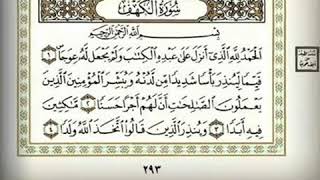 سُورَةُ الكَهْفِ
بِسْمِ اللَّهِ الرَّحْمَٰنِ الرَّحِيمِ
الْحَمْدُ لِلَّهِ الَّذِي أَنزَلَ عَلَىٰ عَبْدِهِ الْكِتَٰبَ وَلَمْ يَجْعَل لَّهُ عِوَجَا ١
قَيِّمًا لِّيُنذِرَ بَأْسًا شَدِيدًا مِّن لَّدُنْهُ وَيُبَشِّرَ الْمُؤْمِنِينَ الَّذِينَ
يَعْمَلُونَ الصَّٰلِحَٰتِ أَنَّ لَهُمْ أَجْرًا حَسَنًا ٢ مَّٰكِثِينَ
فِيهِ أَبَدًا ٣ وَيُنذِرَ الَّذِينَ قَالُوا اتَّخَذَ اللَّهُ وَلَدًا ٤
٢٩٣